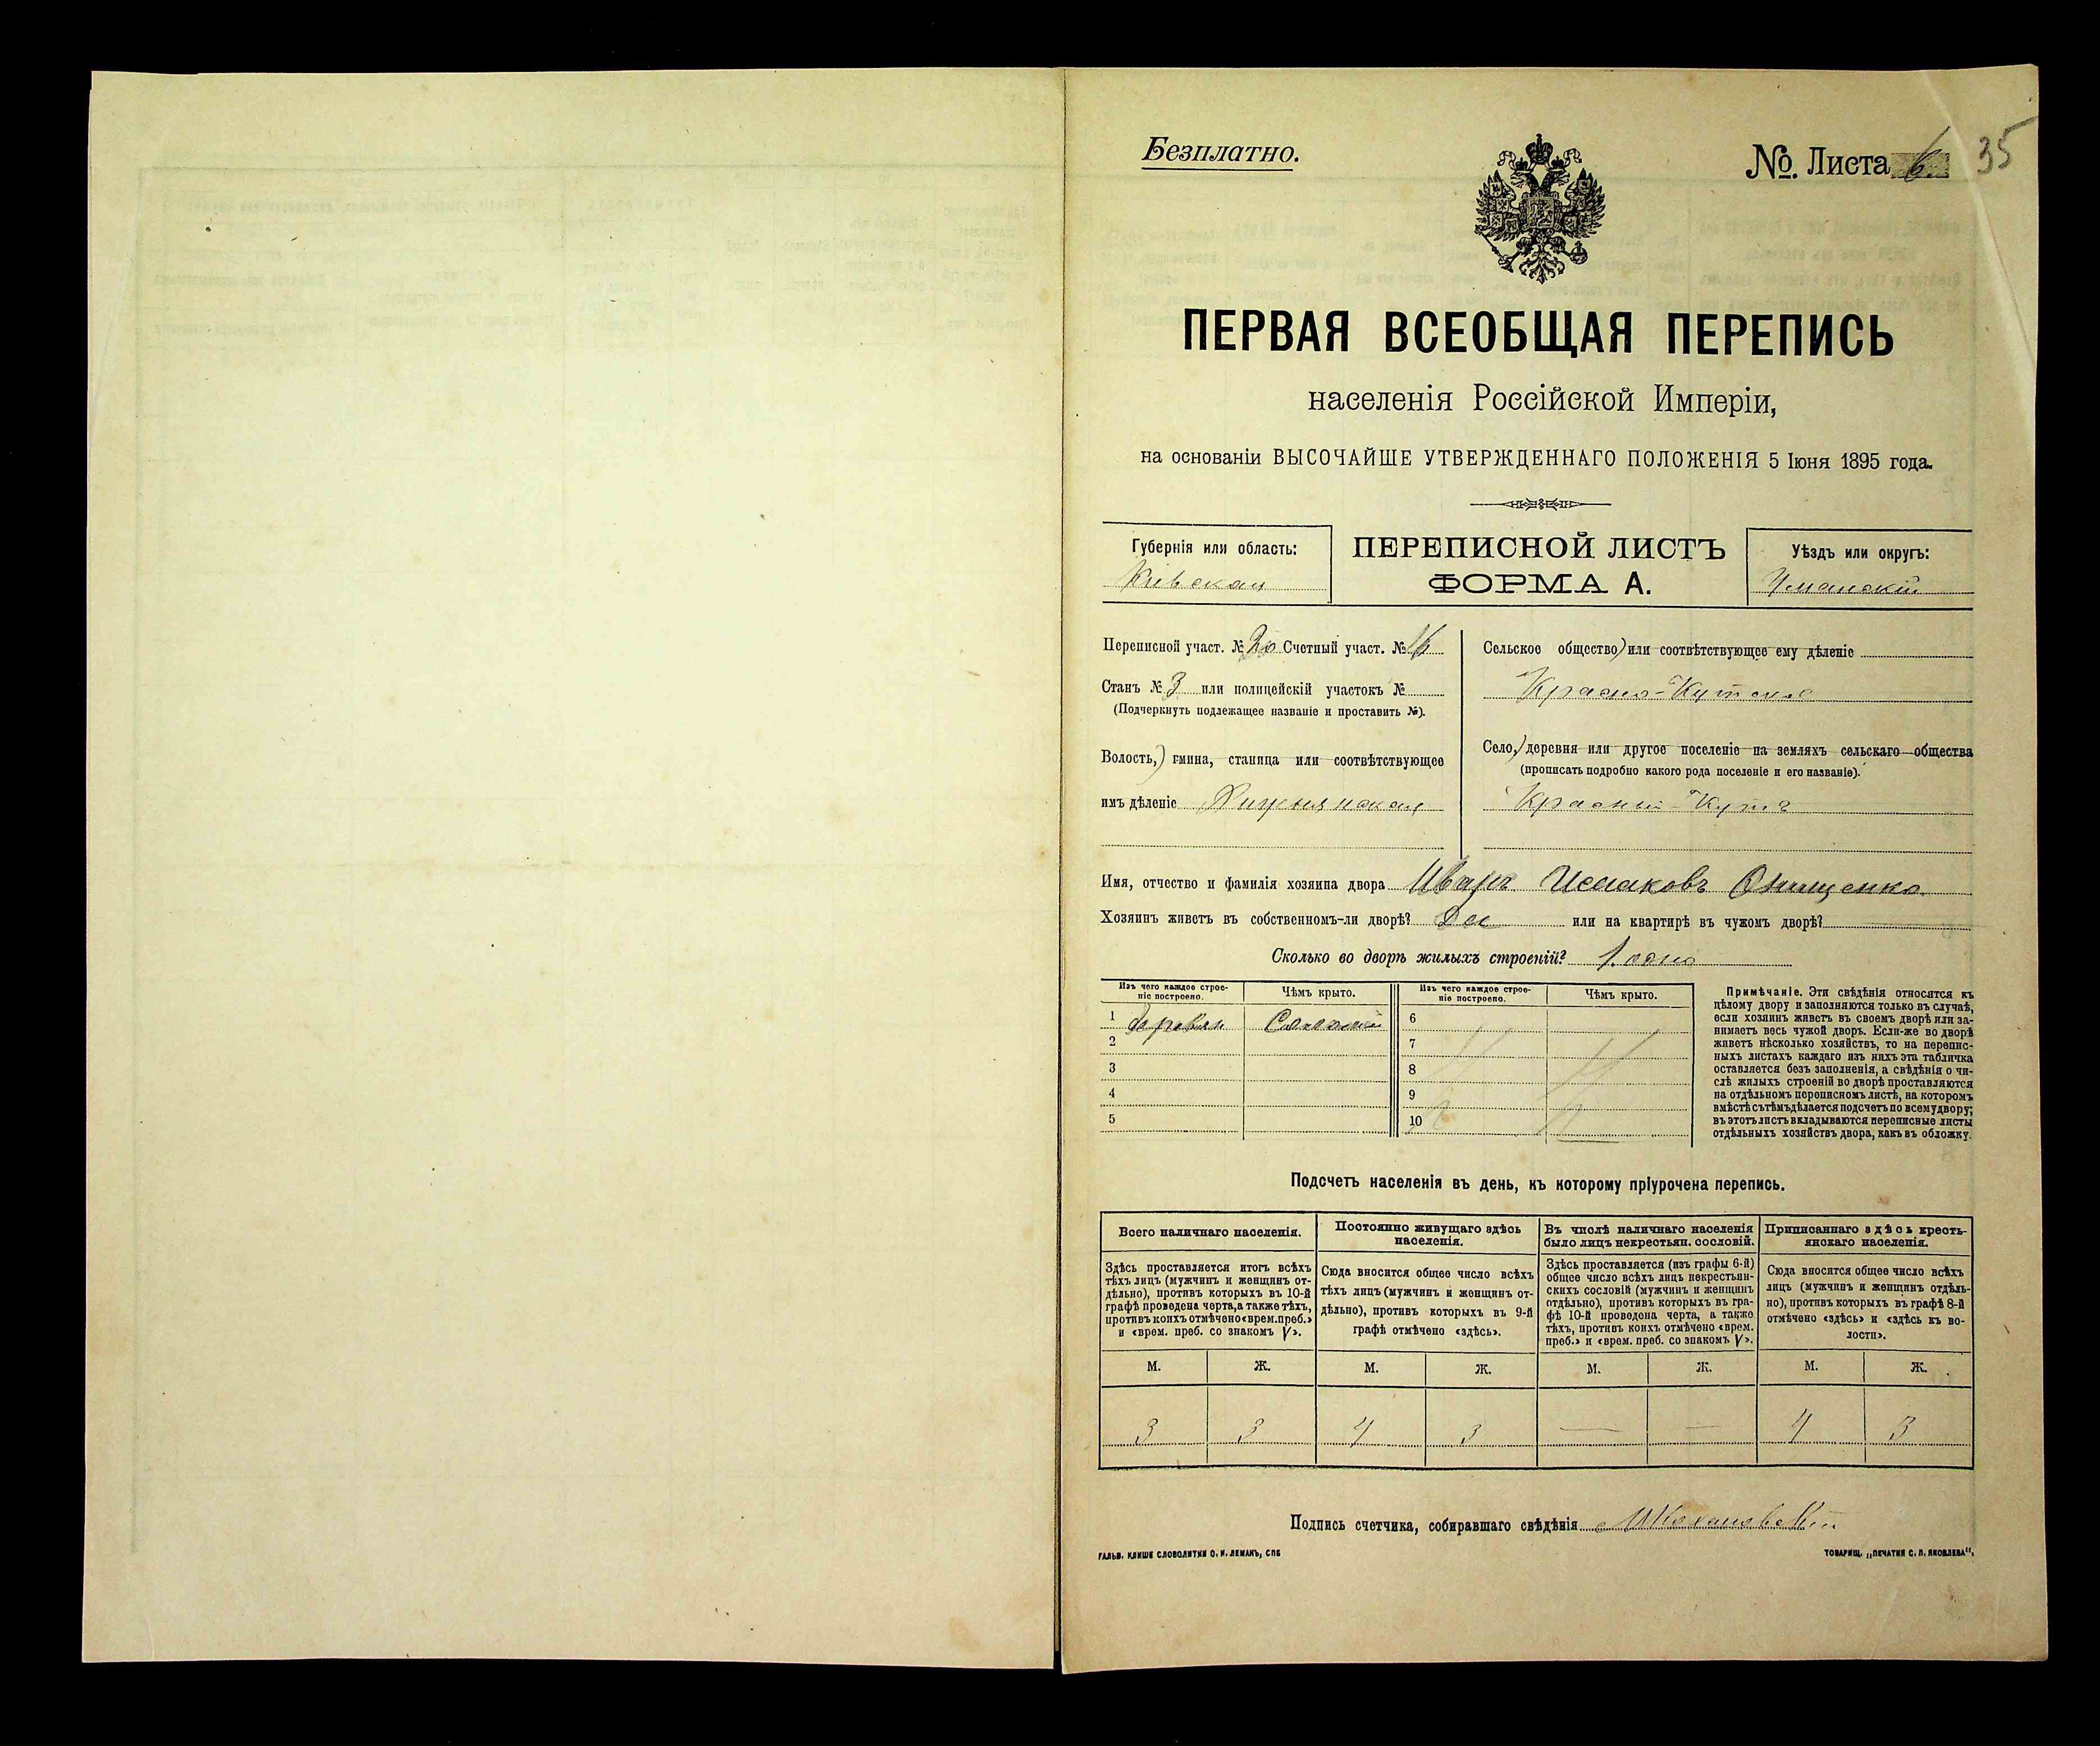 Безплатно.
№. Листа 6
35
ПЕРВАЯ ВСЕОБЩАЯ ПЕРЕПИСЬ
населенія Россійской Имперіи,
на основаніи ВЫСОЧАЙШЕ УТВЕРЖДЕННАГО ПОЛОЖЕНІЯ 5 Іюня 1895 года.
Губернія или область:
Кіевская
ПЕРЕПИСНОЙ ЛИСТЪ
ФОРМА А.
Уѣздъ или округъ:
Уманскій
Переписной участ. № 20 Счетный участ. №
Станъ № 3 или полицейскій участокъ №
(Подчеркнуть подлежащее названіе и проставить №).
Волость,) гмина, станица или соотвѣтствующее
имъ дѣленіе
Сельское общество) или соотвѣтствующее ему дѣленіе
Красно-Кутское
Село,) деревня или другое поселеніе на земляхъ сельскаго общества
(прописать подробно какого рода поселеніе и его названіе).
Красный-Кутъ
Имя, отчество и фамилія хозяина двора Иванъ Исааковъ Онищенко
Хозяинъ живетъ въ собственномъ-ли дворѣ? Да или на квартирѣ въ чужомъ дворѣ?
Сколько во дворѣ жилыхъ строеній? 1. одно
Изъ чего каждое строе-
ніе построено.
Чѣмъ крыто.
Изъ чего каждое строе-
ніе построено.
Чѣмъ крыто.
1 Соломой 6
2 7
3 8
4 9
5 10
Примѣчаніе. Эти свѣдѣнія относятся къ
цѣлому двору и заполняются только въ случаѣ,
если хозяинъ живетъ въ своемъ дворѣ или за-
нимаетъ весь чужой дворъ. Если-же во дворѣ
живетъ нѣсколько хозяйствъ, то на перепис-
ныхъ листахъ каждаго изъ нихъ эта табличка
оставляется безъ заполненія, а свѣдѣнія о чи-
слѣ жилыхъ строеній во дворѣ проставляются
на отдѣльномъ переписномъ листѣ, на которомъ
вмѣстѣ съ тѣмъ дѣлается подсчетъ по всему двору;
въ этотъ листъ вкладываются переписные листы
отдѣльныхъ хозяйствъ двора, какъ въ обложку.
Подсчетъ населенія въ день, къ которому пріурочена перепись.
Всего наличнаго населенія.
Здѣсь проставляется итогъ всѣхъ
тѣхъ лицъ (мужчинъ и женщинъ от-
дѣльно), противъ которыхъ въ 10-й
графѣ проведена черта, а также тѣхъ,
противъ коихъ отмѣчено «врем. преб.»
и «врем. преб. со знакомъ V».
Постоянно живущаго здѣсь
населенія.
Сюда вносится общее число всѣхъ
тѣхъ лицъ (мужчинъ и женщинъ от-
дѣльно), противъ которыхъ въ 9-й
графѣ отмѣчено «здѣсь».
Въ числѣ наличнаго населенія
было лицъ некрестьян. сословій.
Здѣсь проставляется (изъ графы 6-й)
общее число всѣхъ лицъ некрестьян-
скихъ сословій (мужчинъ и женщинъ
отдѣльно), противъ которыхъ въ гра-
фѣ 10-й проведена черта, а также
тѣхъ, противъ коихъ отмѣчено «врем.
преб.» и «врем. преб. со знакомъ V».
Приписаннаго здѣсь кресть-
янскаго населенія.
Сюда вносится общее число всѣхъ
лицъ (мужчинъ и женщинъ отдѣль-
но), противъ которыхъ въ графѣ 8-й
отмѣчено «здѣсь» и «здѣсь къ во-
лости».
М. Ж. М. Ж. М. Ж. М. Ж.
3 3 4 3 — — 4 3
Подпись счетчика, собиравшаго свѣдѣнія
ГАЛЬВ. КЛИШЕ СЛОВОЛИТНИ О. И. ЛЕМАНЪ, СПБ
ТОВАРИЩ. „ПЕЧАТНЯ С. П. ЯКОВЛЕВА".